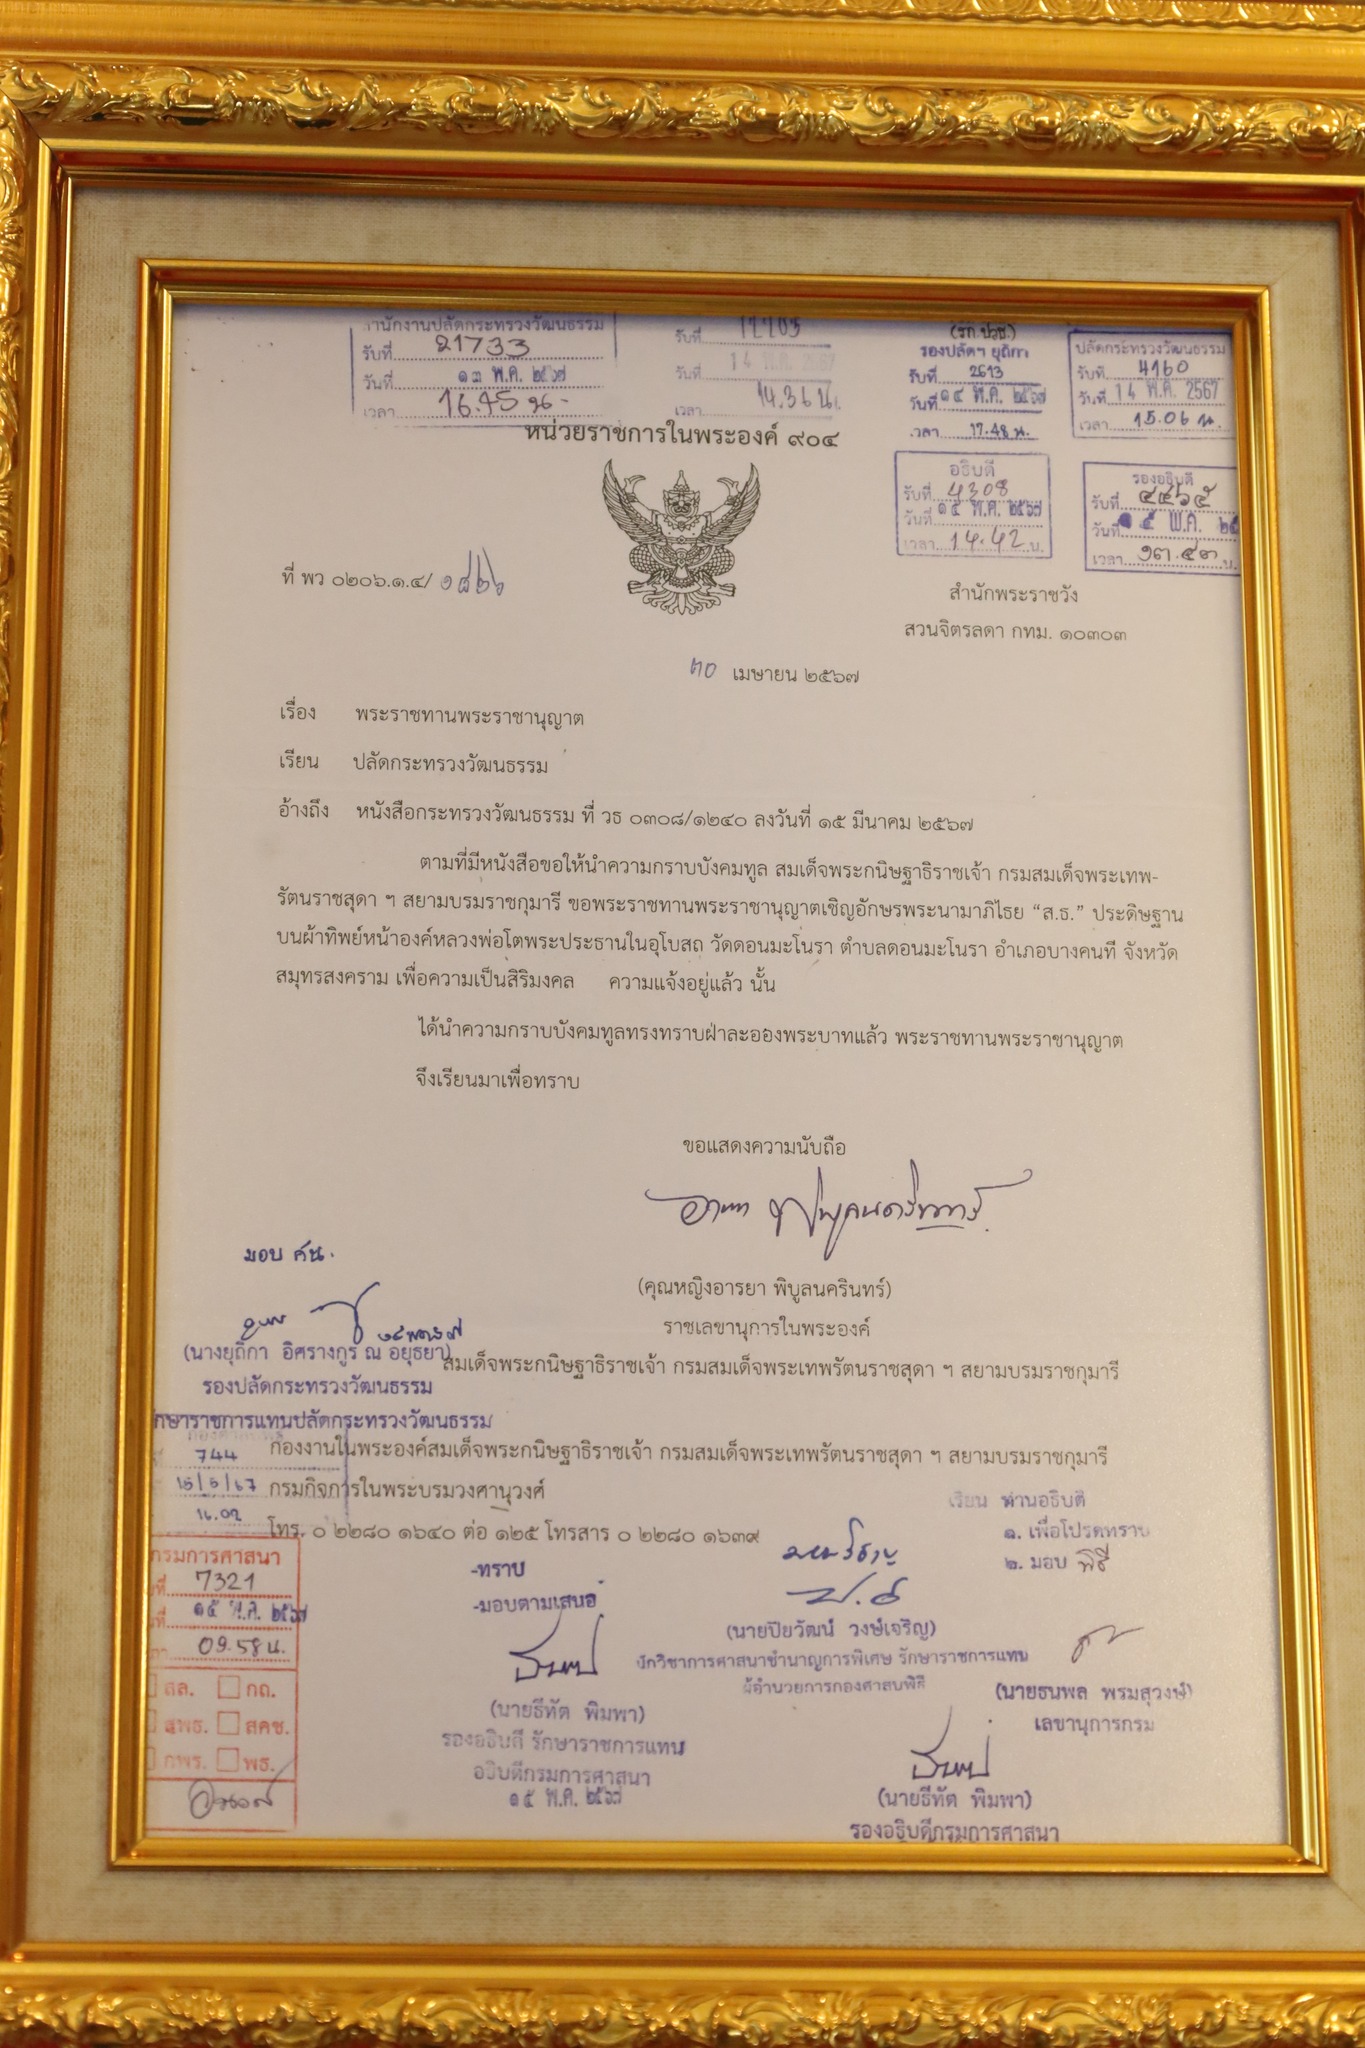 สำนักงานปลัดกระทรวงวัฒนธรรม
รับที่ 21733
วันที่ ๑๓ พ.ค. ๒๕๖๗
เวลา 16.45 น.
รับที่
วันที่ 14 พ.ค. 2567
เวลา 14.36 น.
(รก.ปวธ.)
รองปลัดฯ ยุถิกา
รับที่ 2613
วันที่ ๑๔ พ.ค. ๒๕๖๗
เวลา 17.48 น.
ปลัดกระทรวงวัฒนธรรม
รับที่ 4160
วันที่ 14 พ.ค. 2567
เวลา 15.06 น.
หน่วยราชการในพระองค์ ๙๐๔
อธิบดี
รับที่ 4308
วันที่ ๑๕ พ.ค. ๒๕๖๗
เวลา 14.42 น.
รองอธิบดี
รับที่ ๔๔๖๕
วันที่ ๑๕ พ.ค. ๒๕
เวลา ๑๓.๕๓ น.
ที่ พว ๐๒๐๖.๑.๔/๑๘๒๖
สำนักพระราชวัง
สวนจิตรลดา กทม. ๑๐๓๐๓
๓๐ เมษายน ๒๕๖๗
เรื่อง พระราชทานพระราชานุญาต
เรียน ปลัดกระทรวงวัฒนธรรม
อ้างถึง หนังสือกระทรวงวัฒนธรรม ที่ วธ ๐๓๐๘/๑๒๔๐ ลงวันที่ ๑๕ มีนาคม ๒๕๖๗
ตามที่มีหนังสือขอให้นำความกราบบังคมทูล สมเด็จพระกนิษฐาธิราชเจ้า กรมสมเด็จพระเทพ-
รัตนราชสุดา ฯ สยามบรมราชกุมารี ขอพระราชทานพระราชานุญาตเชิญอักษรพระนามาภิไธย “ส.ธ.” ประดิษฐาน
บนผ้าทิพย์หน้าองค์หลวงพ่อโตพระประธานในอุโบสถ วัดดอนมะโนรา ตำบลดอนมะโนรา อำเภอบางคนที จังหวัด
สมุทรสงคราม เพื่อความเป็นสิริมงคล ความแจ้งอยู่แล้ว นั้น
ได้นำความกราบบังคมทูลทรงทราบฝ่าละอองพระบาทแล้ว พระราชทานพระราชานุญาต
จึงเรียนมาเพื่อทราบ
ขอแสดงความนับถือ
อารยา พิบูลนครินทร์
(คุณหญิงอารยา พิบูลนครินทร์)
ราชเลขานุการในพระองค์
สมเด็จพระกนิษฐาธิราชเจ้า กรมสมเด็จพระเทพรัตนราชสุดา ฯ สยามบรมราชกุมารี
มอบ ศน.
(นางยุถิกา อิศรางกูร ณ อยุธยา)
รองปลัดกระทรวงวัฒนธรรม
รักษาราชการแทนปลัดกระทรวงวัฒนธรรม
744
15/5/67
กองงานในพระองค์สมเด็จพระกนิษฐาธิราชเจ้า กรมสมเด็จพระเทพรัตนราชสุดา ฯ สยามบรมราชกุมารี
กรมกิจการในพระบรมวงศานุวงศ์
โทร. ๐ ๒๒๘๐ ๑๖๔๐ ต่อ ๑๒๕ โทรสาร ๐ ๒๒๘๐ ๑๖๓๙
กรมการศาสนา
7321
๑๕ พ.ค. ๒๕๖๗
09.58 น.
สล. กถ.
สพธ. สคช.
กพร. พธ.
-ทราบ
-มอบตามเสนอ
(นายธีทัต พิมพา)
รองอธิบดี รักษาราชการแทน
อธิบดีกรมการศาสนา
๑๕ พ.ค. ๒๕๖๗
(นายปิยวัฒน์ วงษ์เจริญ)
นักวิชาการศาสนาชำนาญการพิเศษ รักษาราชการแทน
ผู้อำนวยการกองศาสนพิธี
เรียน ท่านอธิบดี
๑. เพื่อโปรดทราบ
๒. มอบ พิธี
(นายธนพล พรมสุวงษ์)
เลขานุการกรม
(นายธีทัต พิมพา)
รองอธิบดีกรมการศาสนา